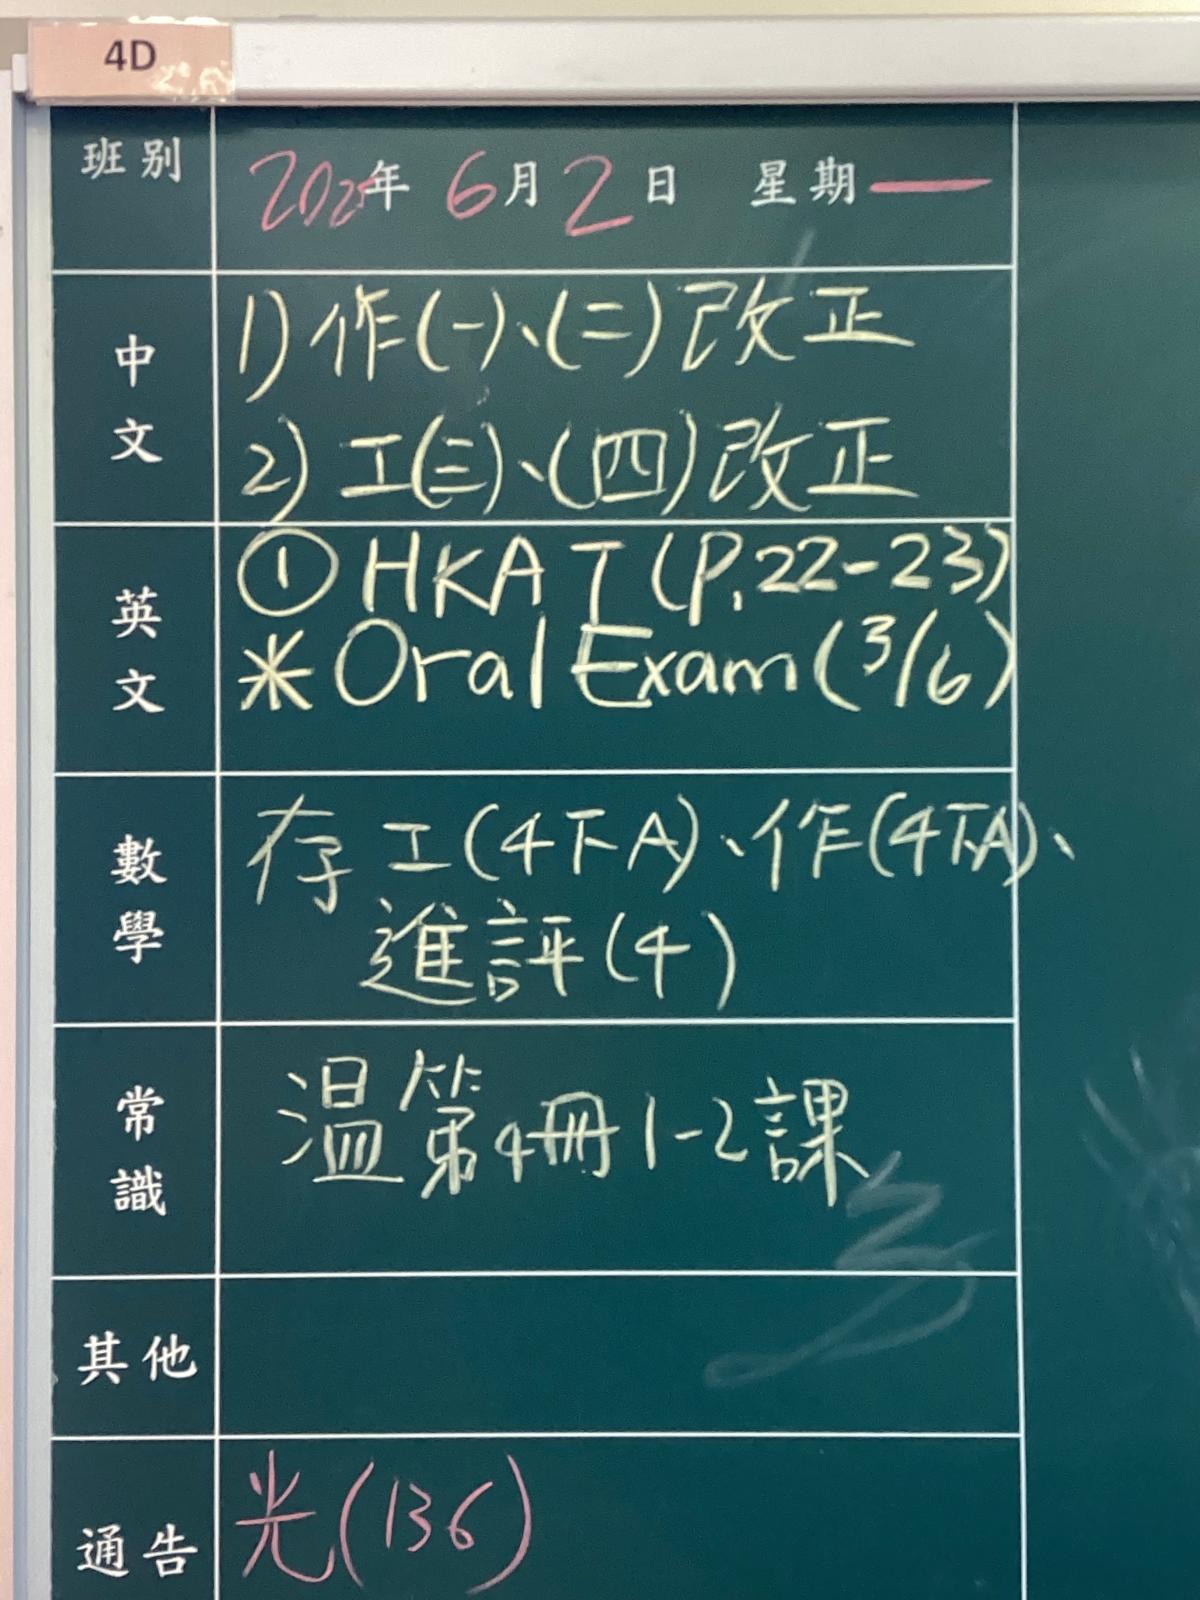 4D
班別 2025年 6月2日 星期一
中文
1) 作(一)、(二)改正
2) 工(三)、(四)改正
英文
① HKAT (P.22-23)
* Oral Exam (3/6)
數學
存 工(4下A)、作(4下A)、
進評(4)
常識
溫第4冊1-2課
其他
通告
光(136)